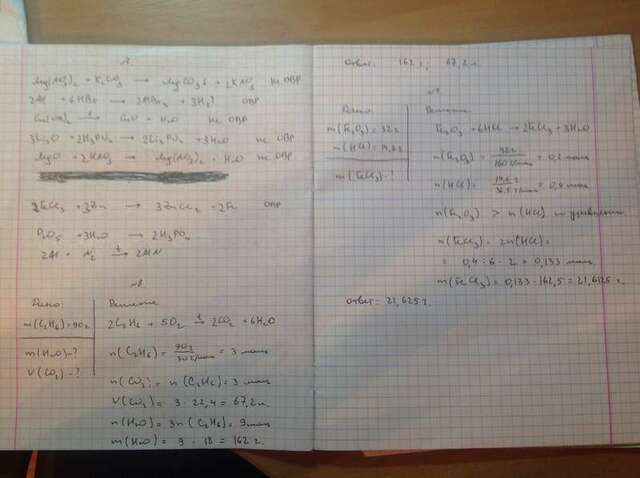 Mg(NO₃)₂ + K₂CO₃ → MgCO₃↓ + 2KNO₃ не ОВР
2Al + 6HBr → 2AlBr₃ + 3H₂↑ ОВР
Cu(OH)₂ →t CuO + H₂O не ОВР
3Li₂O + 2H₃PO₄ → 2Li₃PO₄ + 3H₂O не ОВР
MgO + 2HNO₃ → Mg(NO₃)₂ + H₂O не ОВР
2FeCl₃ + 3Zn → 3ZnCl₂ + 2Fe ОВР
P₂O₅ + 3H₂O → 2H₃PO₄
2Al + N₂ →t 2AlN
Дано:
m(C₂H₆) = 90г
m(H₂O) - ?
V(CO₂) - ?
Решение
2C₂H₆ + 5O₂ →t 2CO₂ + 6H₂O
n(C₂H₆) = 90г / 30 г/моль = 3 моль
n(CO₂) = n(C₂H₆) = 3 моль
V(CO₂) = 3 · 22,4 = 67,2 л.
n(H₂O) = 3n(C₂H₆) = 9 моль
m(H₂O) = 9 · 18 = 162 г.
Ответ: 162 г; 67,2 л.
Дано:
m(Fe₂O₃) = 32г
m(HCl) = 14,6г
m(FeCl₃) - ?
Решение
Fe₂O₃ + 6HCl → 2FeCl₃ + 3H₂O
n(Fe₂O₃) = 32г / 160 г/моль = 0,2 моль
n(HCl) = 14,6г / 36,5 г/моль = 0,4 моль
n(Fe₂O₃) > n(HCl)
n(FeCl₃) = 2n(HCl) =
= 0,4 : 6 · 2 = 0,133 моль
m(FeCl₃) = 0,133 · 162,5 = 21,6125 г.
Ответ: 21,625 г.